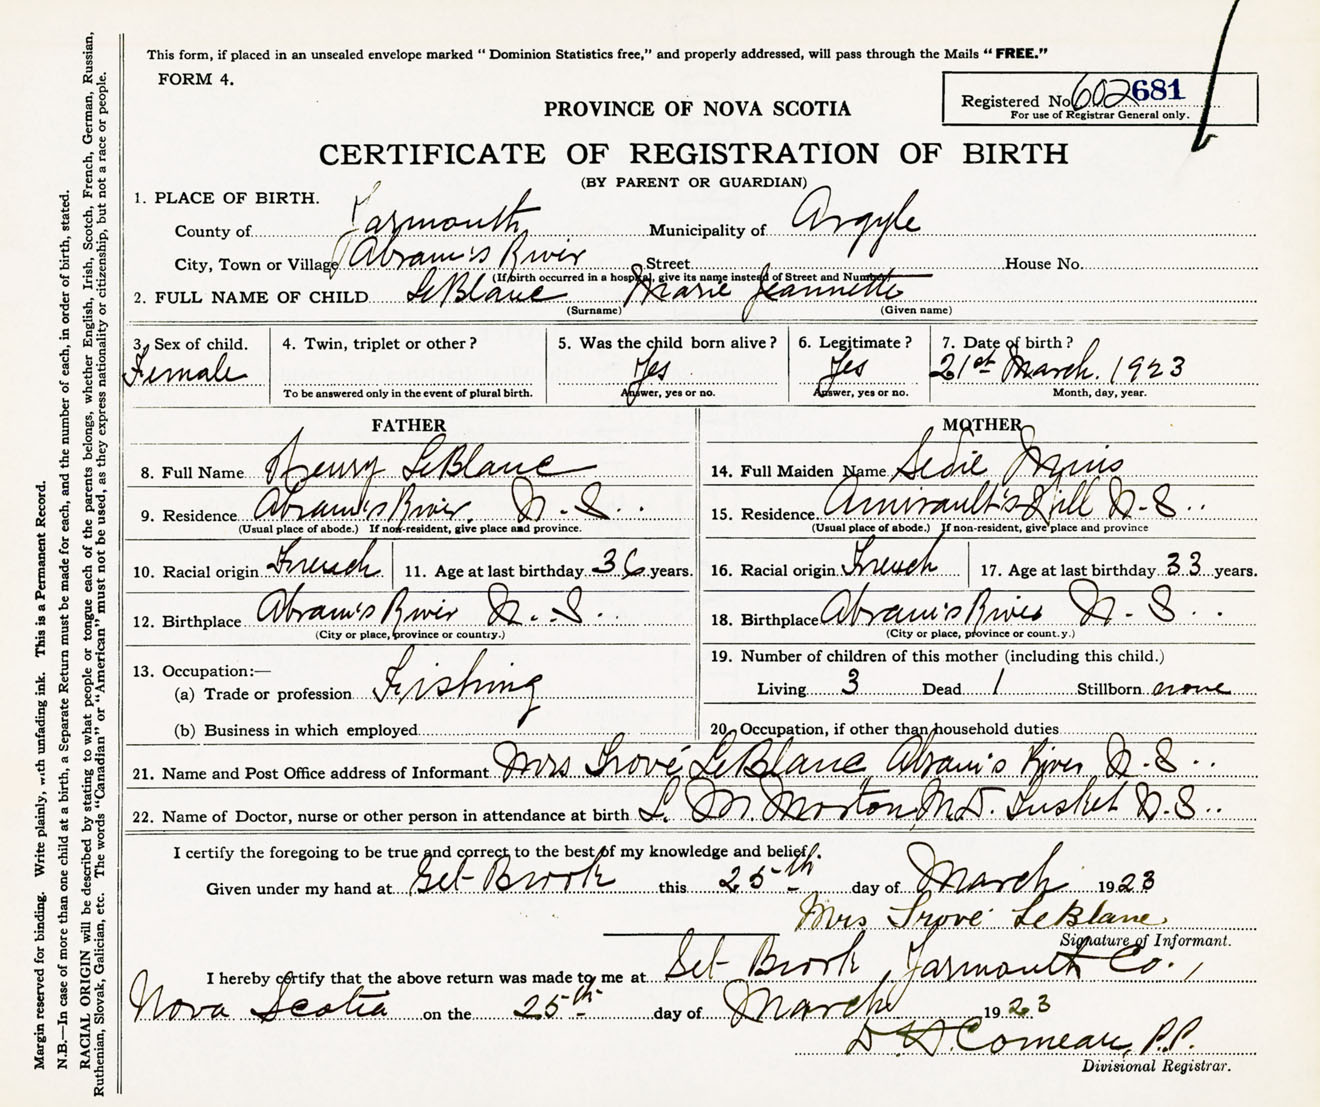 This form, if placed in an unsealed envelope marked “Dominion Statistics free,” and properly addressed, will pass through the Mails “FREE.”
FORM 4.
Registered No. 602681
For use of Registrar General only.
PROVINCE OF NOVA SCOTIA
CERTIFICATE OF REGISTRATION OF BIRTH
(BY PARENT OR GUARDIAN)
1. PLACE OF BIRTH.
County of Yarmouth Municipality of Argyle
City, Town or Village Abram's River Street House No.
(If birth occurred in a hospital, give its name instead of Street and Number)
2. FULL NAME OF CHILD LeBlanc Marie Jeannette
(Surname) (Given name)
3. Sex of child. 4. Twin, triplet or other? 5. Was the child born alive? 6. Legitimate? 7. Date of birth?
Female Yes Yes 21st March. 1923
To be answered only in the event of plural birth. Answer, yes or no. Answer, yes or no. Month, day, year.
FATHER
8. Full Name Henry LeBlanc
9. Residence Abram's River, N.S..
(Usual place of abode.) If non-resident, give place and province.
10. Racial origin French 11. Age at last birthday 36 years.
12. Birthplace Abram's River N.S.
(City or place, province or country.)
13. Occupation:—
(a) Trade or profession Fishing
(b) Business in which employed
MOTHER
14. Full Maiden Name Sedie Muis
15. Residence Amirault's Hill N.S..
(Usual place of abode.) If non-resident, give place and province
16. Racial origin French 17. Age at last birthday 33 years.
18. Birthplace Abram's River N.S..
(City or place, province or country.)
19. Number of children of this mother (including this child.)
Living 3 Dead 1 Stillborn none
20. Occupation, if other than household duties
21. Name and Post Office address of Informant Mrs Trové LeBlanc Abram's River N.S..
22. Name of Doctor, nurse or other person in attendance at birth L. M. Morton, M.D. Tusket N.S..
I certify the foregoing to be true and correct to the best of my knowledge and belief.
Given under my hand at Brook this 25th day of March 1923
Mrs Trové LeBlanc
Signature of Informant.
I hereby certify that the above return was made to me at Brook, Yarmouth Co.,
Nova Scotia on the 25th day of March 1923
Comeau, P.P.
Divisional Registrar.
Margin reserved for binding. Write plainly, with unfading ink. This is a Permanent Record.
N.B.—In case of more than one child at a birth, a Separate Return must be made for each, and the number of each, in order of birth, stated.
RACIAL ORIGIN will be described by stating to what people or tongue each of the parents belongs, whether English, Irish, Scotch, French, German, Russian,
Ruthenian, Slovak, Galician, etc. The words “Canadian” or “American” must not be used, as they express nationality or citizenship, but not a race or people.